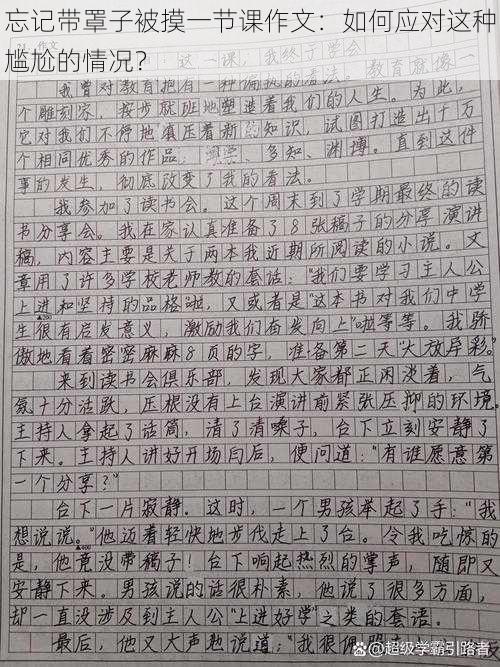 忘记带罩子被摸一节课作文：如何应对这种尴尬的情况？
这一课，我终于学会
我曾对教育抱有一种偏执的看法。教育就像一
个雕刻家，按步就班地塑造着我们的人生。为此，
它对我们不停地填压着新的知识，试图打造出千万
个相同优秀的作品；好学、多知、渊博。直到这件
事的发生，彻底改变了我的看法。
我参加了读书会。这个周末到了学期最终的读
书分享会。我在家认真准备了8张稿子的分享演讲
稿，内容主要是关于两本我近期所阅读的小说。文
章用了许多学校老师教的套话："我们要学习主人公
上进和坚持的品格"啦，又或者是"这本书对我们中学
生很有启发意义，激励我们奋发向上"啦等等。我骄
傲地看着密密麻麻8页的字，准备第二天"大放异彩"。
来到读书会俱乐部，发现大家都正闲谈着，气
氛十分活跃，压根没有上台演讲前紧张压抑的环境。
主持人拿起了话筒，清了清嗓子，台下立刻安静了
下来。主持人讲好开场白后，便问道："有谁愿意第
一个分享？"
台下一片寂静。这时，一个男孩举起了手："我
想说说。"他迈着轻快地步伐走上了台。令我吃惊的
是，他竟没带稿子！台下响起热烈的掌声，随即又
安静下来。男孩说的话很朴素，他说了很多方面，
却一直没涉及到主人公"上进好学"之类的套语。
最后，他又大声地说道："我很佩服
超级学霸引路者